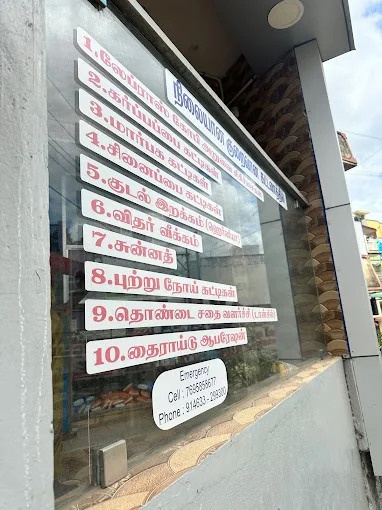 நிலையான குறைவான கட்டணத்தில்
1.லேப்ராஸ்கோபி அறுவை சிகிச்சை
2.கர்ப்பப்பை கட்டிகள்
3.மார்பக கட்டிகள்
4.சினைப்பை கட்டிகள்
5.குடல் இறக்கம் (ஹெர்னியா)
6.விதர் வீக்கம்
7.சுன்னத்
8.புற்று நோய் கட்டிகள்
9.தொண்டை சதை வளர்ச்சி (டான்சில்)
10.தைராய்டு ஆபரேஷன்
Emergency
Cell : 7695858677
Phone : 914633 - 299300